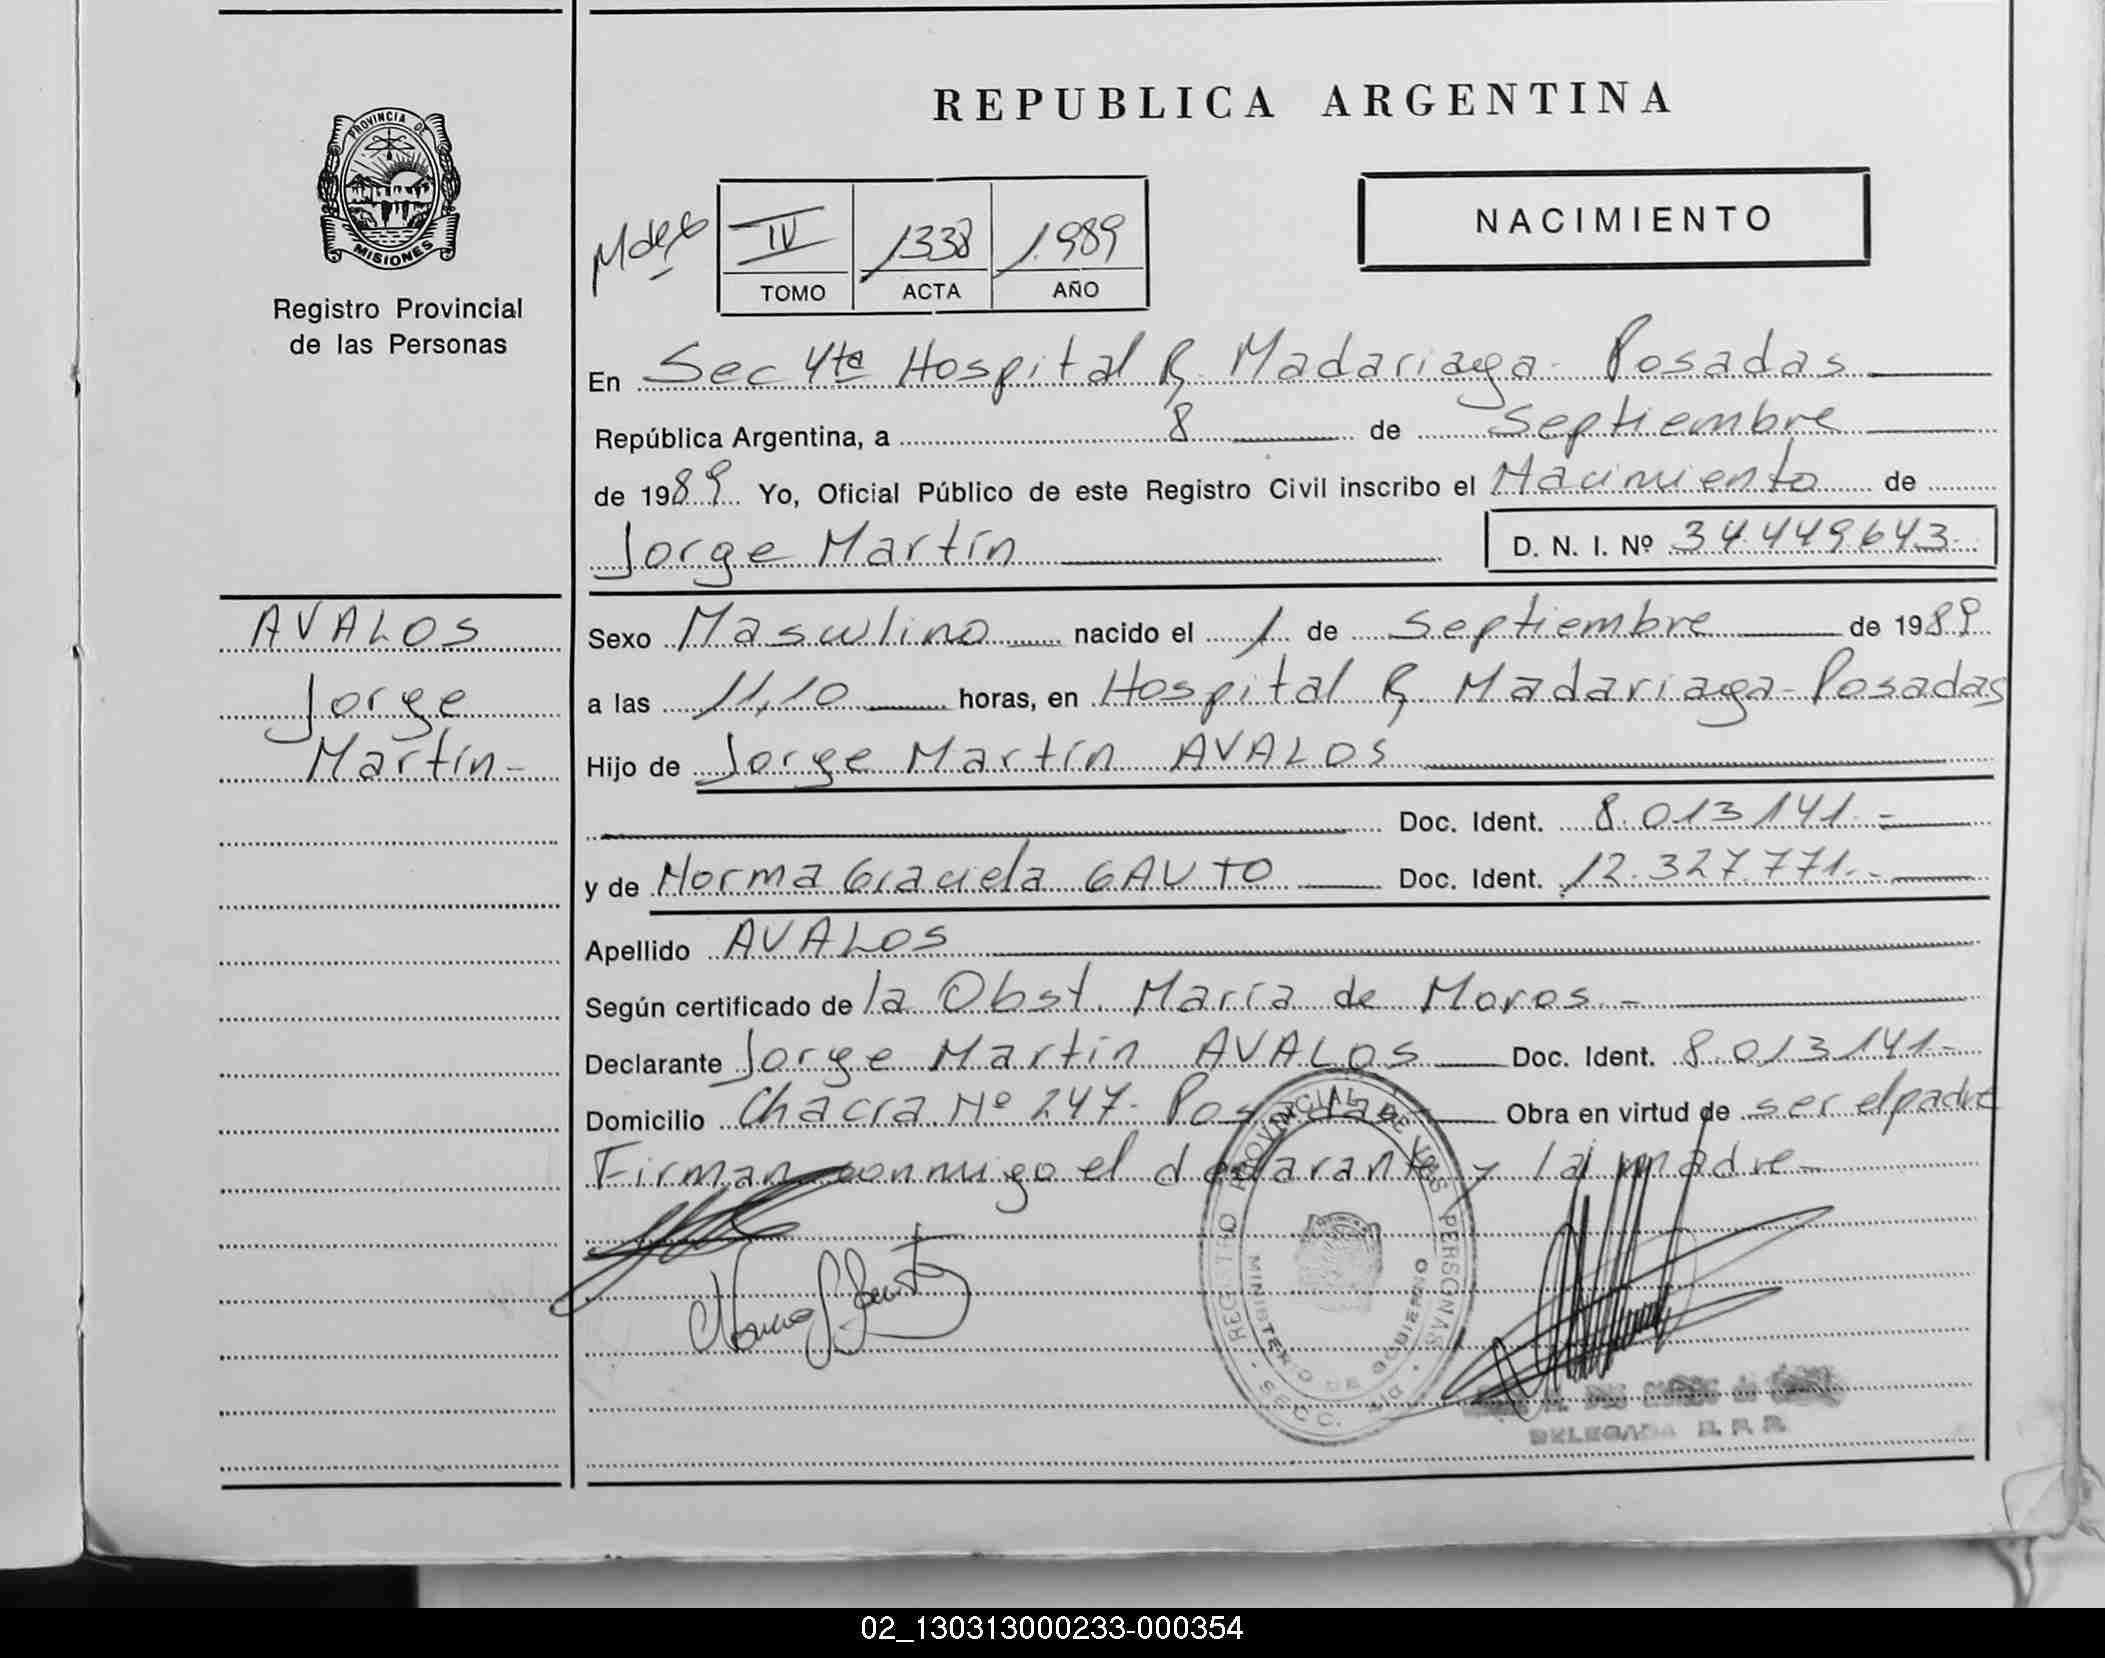 REPUBLICA ARGENTINA
PROVINCIA DE
MISIONES
Registro Provincial
de las Personas
NACIMIENTO
IV 1338 1.989
TOMO ACTA AÑO
En Sec 4ta Hospital R. Madariaga - Posadas
República Argentina, a 8 de Septiembre
de 1989 Yo, Oficial Público de este Registro Civil inscribo el Nacimiento de
Jorge Martín D. N. I. Nº 34.449.643
AVALOS
Jorge
Martín -
Sexo Masculino nacido el 1 de Septiembre de 1989
a las 11,10 horas, en Hospital R. Madariaga - Posadas
Hijo de Jorge Martín AVALOS
Doc. Ident. 8.013.141.-
y de Norma Graciela GAUTO Doc. Ident. 12.327.771.-
Apellido AVALOS
Según certificado de la Obst. María de Moros.-
Declarante Jorge Martín AVALOS Doc. Ident. 8.013.141.-
Domicilio Chacra Nº 247- Posadas Obra en virtud de ser el padre
Firman conmigo el declarante y la madre -
REGISTRO PROVINCIAL DE LAS PERSONAS
MINISTERIO DE GOBIERNO
SECC. 4ta
DELEGADA R. P. P.
02_130313000233-000354